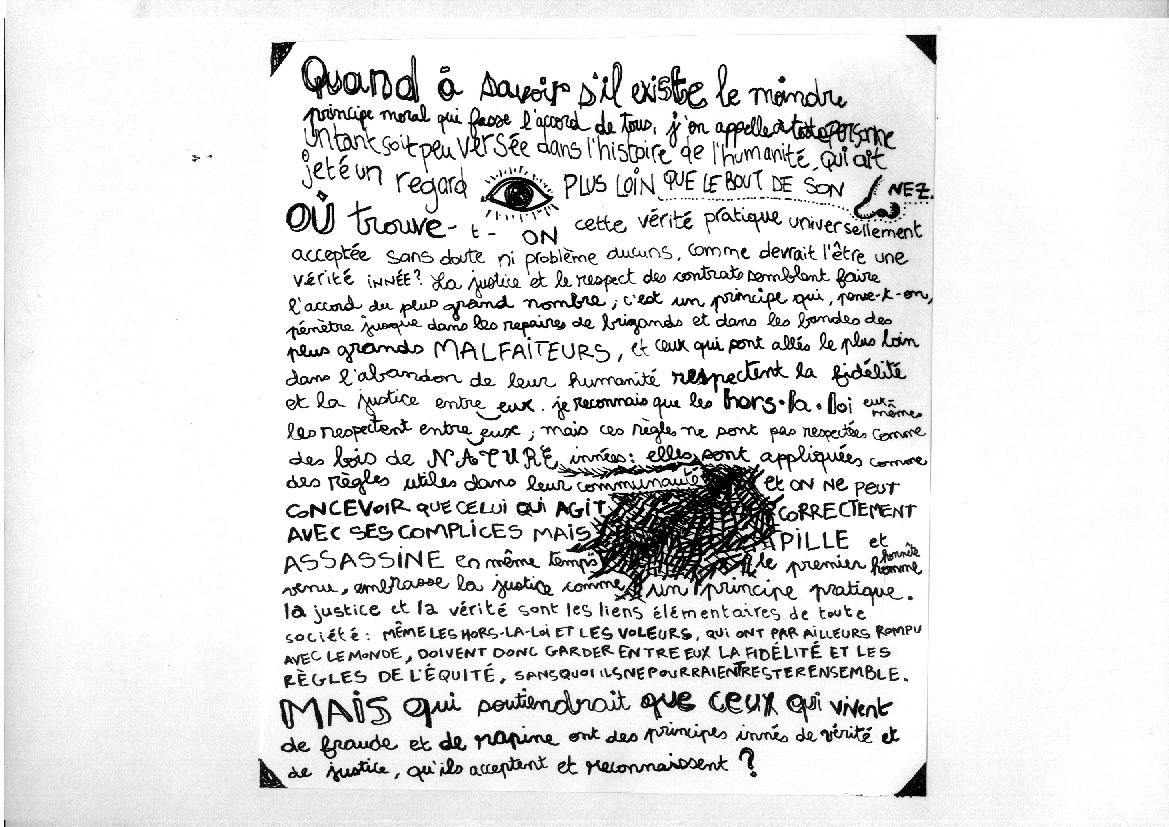 Quand à savoir s'il existe le moindre
principe moral qui fasse l'accord de tous, j'en appelle à toute personne
un tant soit peu versée dans l'histoire de l'humanité, qui ait
jeté un regard PLUS LOIN QUE LE BOUT DE SON NEZ.
OÙ trouve-t-ON cette vérité pratique universellement
acceptée sans doute ni problème aucuns, comme devrait l'être une
vérité INNÉE? La justice et le respect des contrats semblent faire
l'accord du plus grand nombre; c'est un principe qui, pense-t-on,
pénètre jusque dans les repaires de brigands et dans les bandes des
plus grands MALFAITEURS, et ceux qui sont allés le plus loin
dans l'abandon de leur humanité respectent la fidélité
et la justice entre eux. je reconnais que les hors-la-loi eux-mêmes
les respectent entre eux; mais ces règles ne sont pas respectées comme
des lois de NATURE innées: elles sont appliquées comme
des règles utiles dans leur communauté et ON NE PEUT
CONCEVOIR QUE CELUI QUI AGIT CORRECTEMENT
AVEC SES COMPLICES MAIS PILLE et
ASSASSINE en même temps le premier honnête homme
venu, embrasse la justice comme un principe pratique.
la justice et la vérité sont les liens élémentaires de toute
société: MÊME LES HORS-LA-LOI ET LES VOLEURS, QUI ONT PAR AILLEURS ROMPU
AVEC LE MONDE, DOIVENT DONC GARDER ENTRE EUX LA FIDÉLITÉ ET LES
RÈGLES DE L'ÉQUITÉ, SANS QUOI ILS NE POURRAIENT RESTER ENSEMBLE.
MAIS qui soutiendrait que ceux qui vivent
de fraude et de rapine ont des principes innés de vérité et
de justice, qu'ils acceptent et reconnaissent?